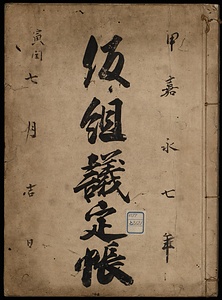 甲嘉永七年
仮組議定帳
寅閏七月吉日